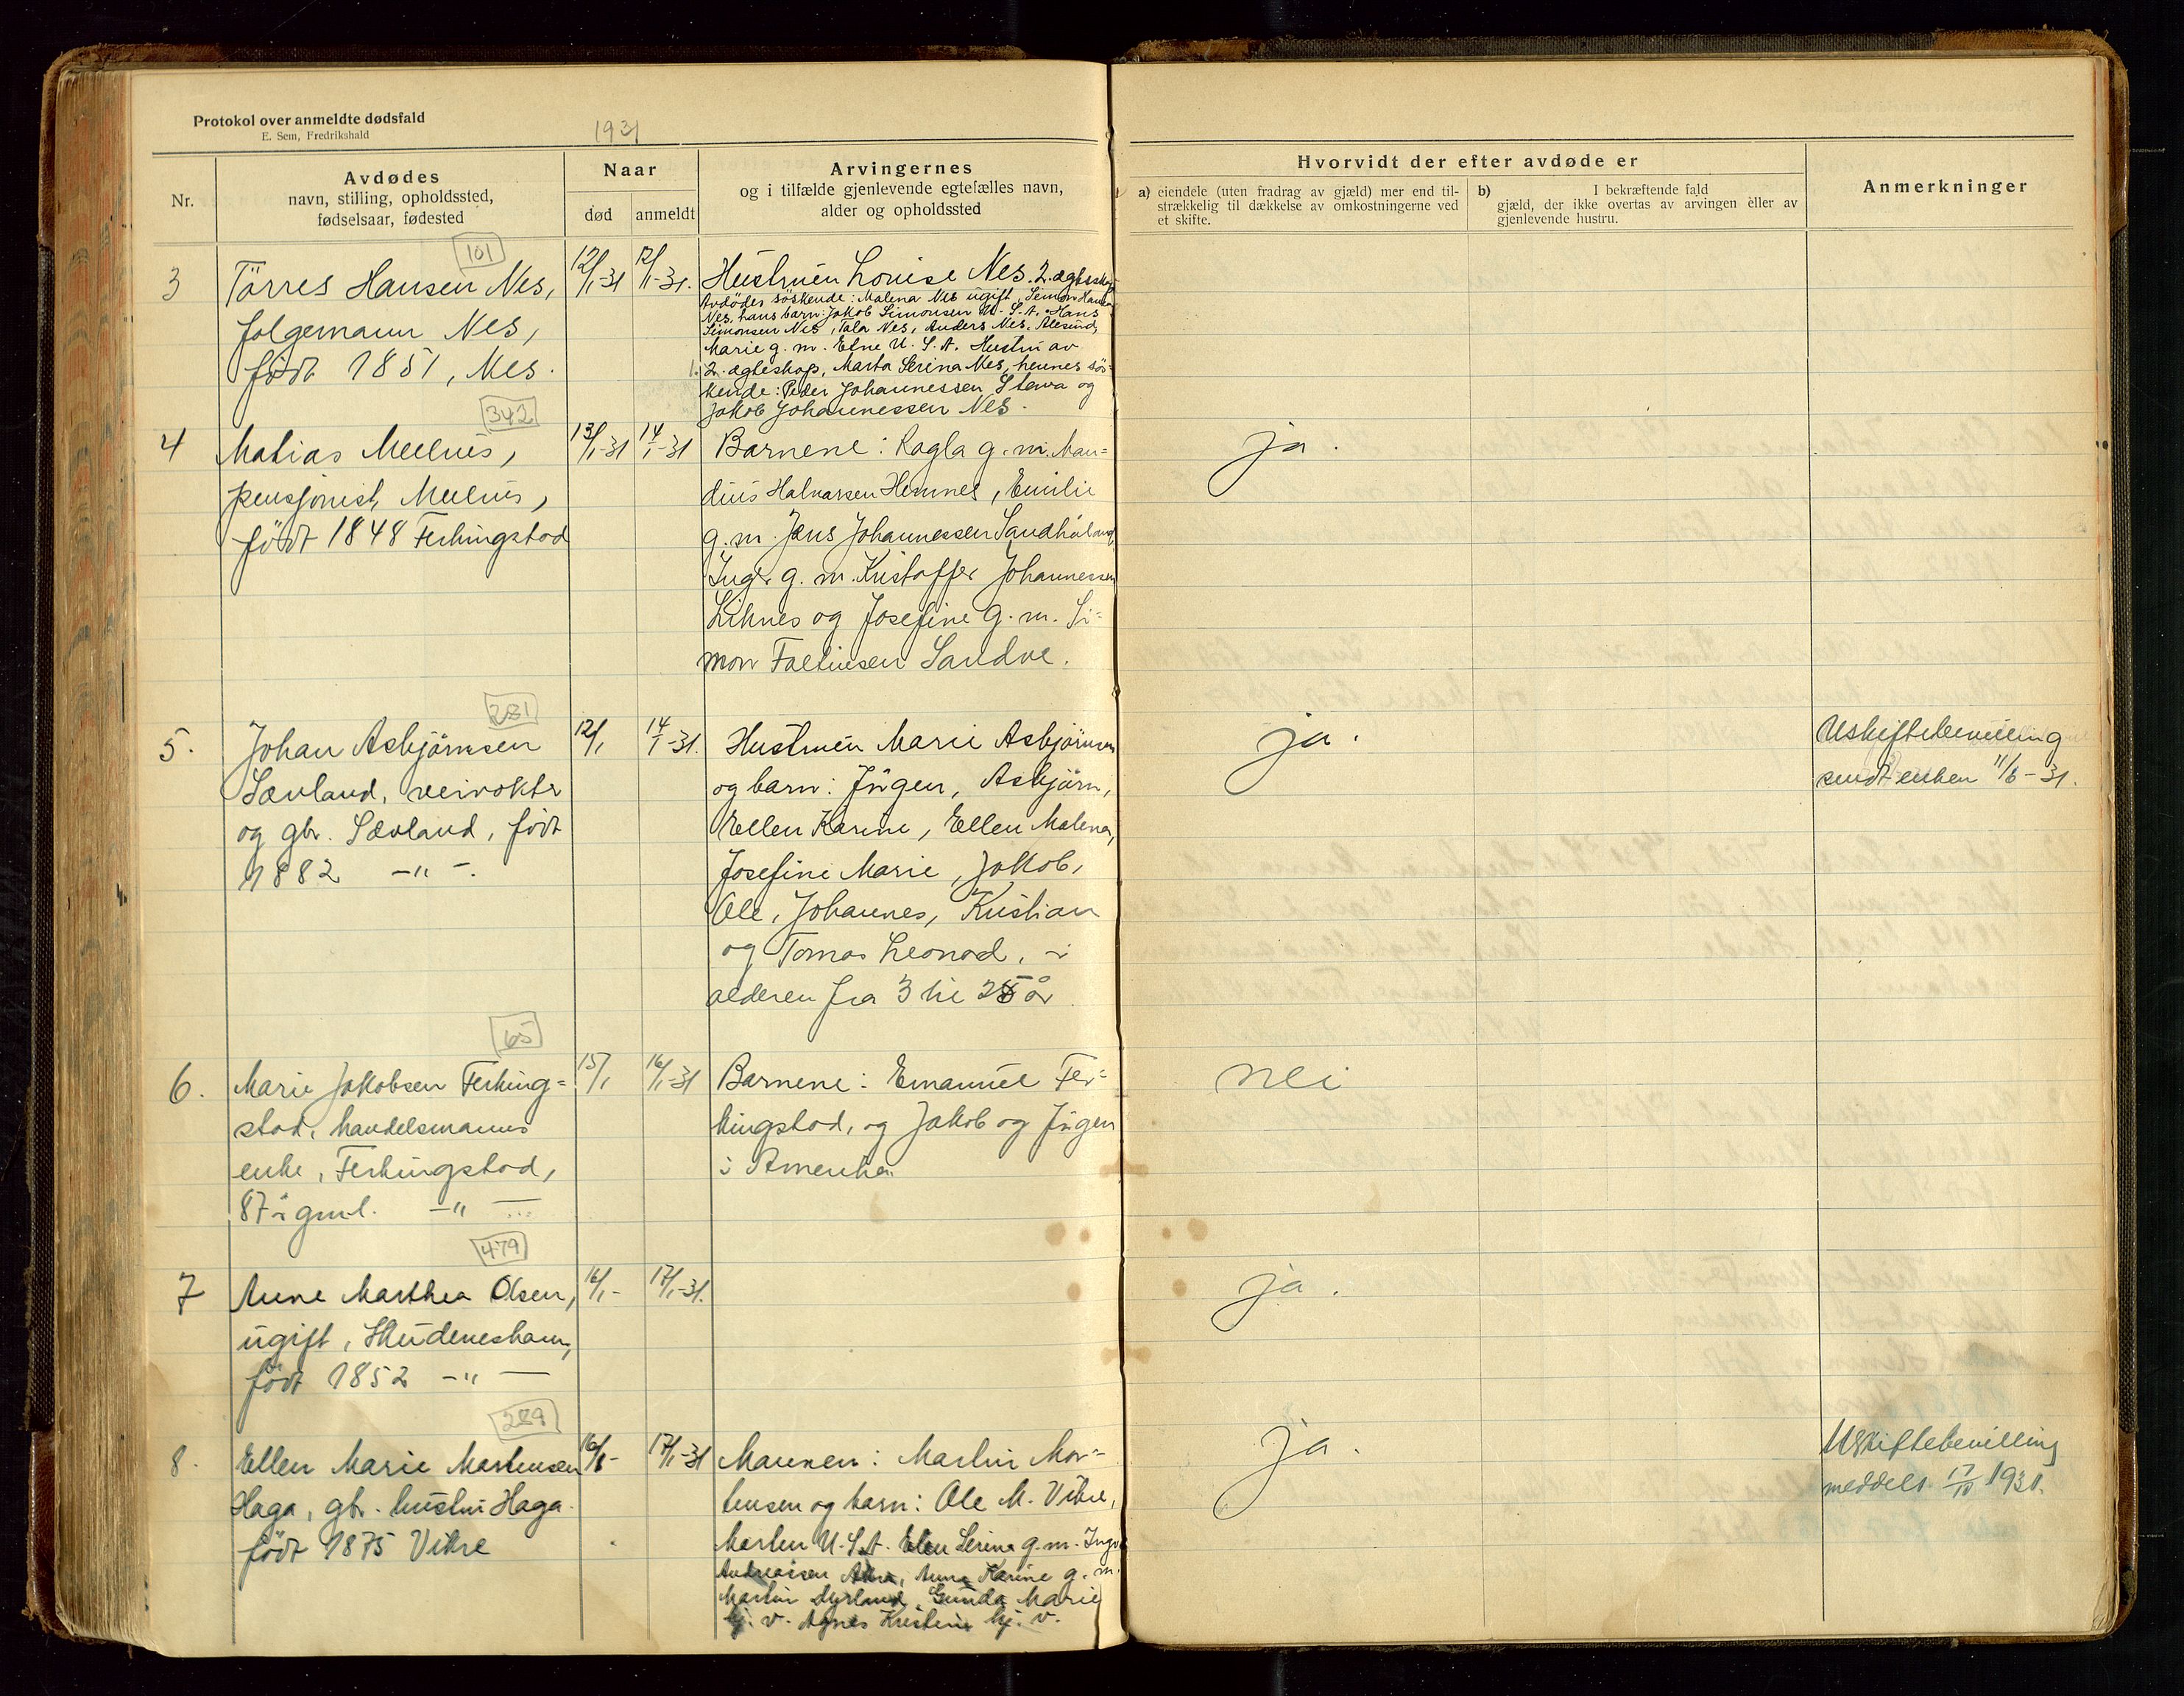 Protokol over anmeldte dødsfald
E. Sem, Fredrikshald
1931
Nr.
Avdødes
navn, stilling, opholdssted,
fødselsaar, fødested
Naar
død
anmeldt
Arvingernes
og i tilfælde gjenlevende egtefælles navn,
alder og opholdssted
Hvorvidt der efter avdøde er
a) eiendele (uten fradrag av gjæld) mer end til-
strækkelig til dækkelse av omkostningerne ved
et skifte.
b) I bekræftende fald
gjæld, der ikke overtas av arvingen eller av
gjenlevende hustru.
Anmerkninger
101
3
Törres Hansen Nes,
folgemann Nes,
født 1851, Nes.
12/1-31
12/1-31.
Hustruen Louise Nes. 2. ægteskap
Avdødes söskende: Malena Nes ugift, Simon Hansen
Nes, hans barn: Jakob Simonsen U.S.A. Hans
Simonsen Nes, Tala Nes, Anders Nes, Alesund,
Marie g. m. Elne U.S.A. Hustru av
2. ægteskap, Marta Serina Nes, hennes sös-
kende: Peder Johannessen Stava og
Jakob Johannessen Nes.
342
4
Matias Meelnes,
pensjonist, Meelnes,
født 1848 Ferkingstad
13/1-31
14/1-31
Barnene: Ragla g. m. Man=
dius Halvarsen Hemnes, Emilie
g. m. Jens Johannessen Sandhåland,
Inger g. m. Kristoffer Johannessen
Liknes og Josefine g. m. Si=
mon Faltinsen Sandve.
ja.
231
5.
Johan Asbjörnsen
Sævland, veivokter
og gbr. Sævland, født
1882 -"-.
12/1
14/1-31.
Hustruen Marie Asbjörnsen
og barn: Jörgen, Asbjörn,
Ellen Karine, Ellen Malena,
Josefine Marie, Jakob,
Ole, Johannes, Kristian
og Tomas Leonad, i
alderen fra 3 til 25 år
ja.
Uskiftebevilling
sendt enken 11/6-31.
65
6.
Marie Jakobsen Ferking=
stad, handelsmanns
enke, Ferkingstad,
87 å gml. -"-
15/1
16/1-31
Barnene: Emanuel Fer=
kingstad, og Jakob og Jörgen
i Amerika.
nei
479
7
Anne Marthea Olsen,
ugift, Skudeneshavn,
født 1852 -"-
16/1-
17/1-31.
ja.
289
8.
Ellen Marie Mortensen
Haga, gbr. hustru Haga
født 1875 Vikre
16/1-
17/1-31
Mannen: Martin Mor=
tensen og barn: Ole M. Vikre,
Morten U.S.A. Elen Serina g. m. Ingv
Andreassen Akra, Anna Karine g. m.
Martin Dyrland, Gunda Marie
hj. v. Agnes Kristine hj. v.
ja.
Uskiftebevilling
meddelt 17/10 1931.